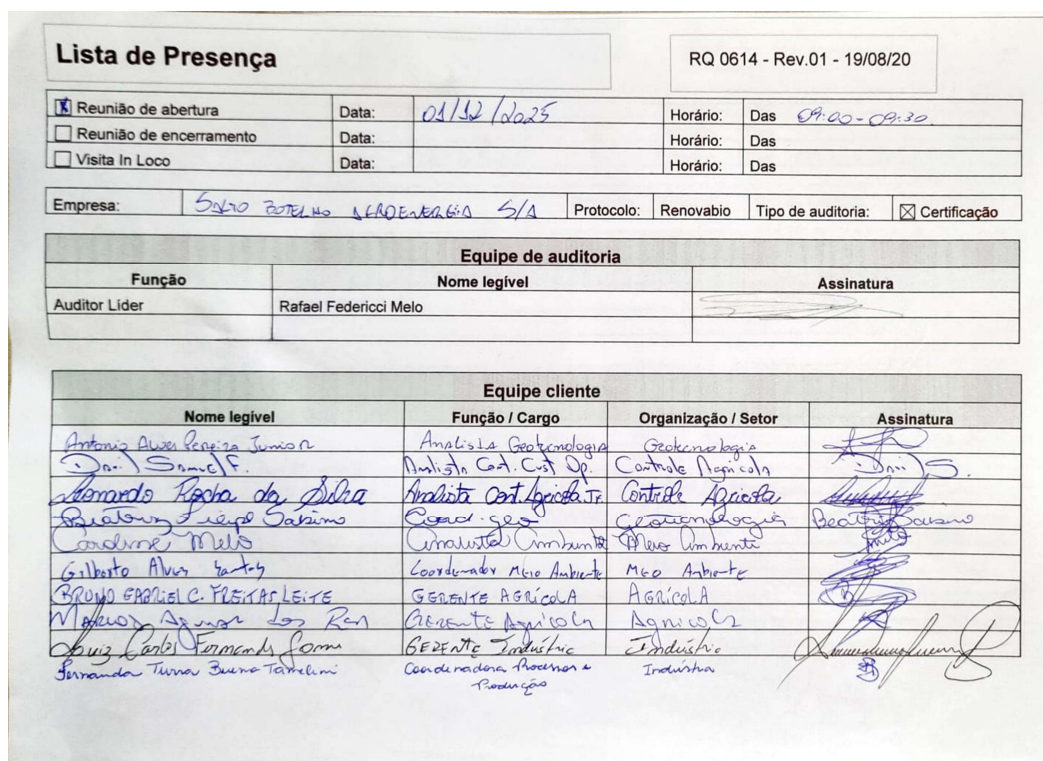 Lista de Presença
RQ 0614 - Rev.01 - 19/08/20
X Reunião de abertura Data: 01/12/2025 Horário: Das 09:00 - 09:30.
Reunião de encerramento Data: Horário: Das
Visita In Loco Data: Horário: Das
Empresa: SALTO BOTELHO AGROENERGIA S/A Protocolo: Renovabio Tipo de auditoria: Certificação
Equipe de auditoria
Função Nome legível Assinatura
Auditor Líder Rafael Federicci Melo
Equipe cliente
Nome legível Função / Cargo Organização / Setor Assinatura
Antonio Alves Pereira Junior Analista Geotecnologia Geotecnologia
Samuel F. Analista Cont. Cust Op. Controle Agricola
Leonardo Rocha da Silva Analista Cont. Agricola Jr. Controle Agricola
Beatriz Sabino Coord. geo Geotecnologia Beatriz Sabino
Caroline Melo Analista Ambiental Meio Ambiente
Gilberto Alves Santos Coordenador Meio Ambiente Meio Ambiente
BRUNO GABRIEL C. FREITAS LEITE GERENTE AGRÍCOLA AGRÍCOLA
Marcos Aguiar dos Gerente Agricola Agricola
Luiz Carlos Fernando GERENTE Indústria Indústria
Fernanda Bueno Coordenadora Processos e Indústria
Produção